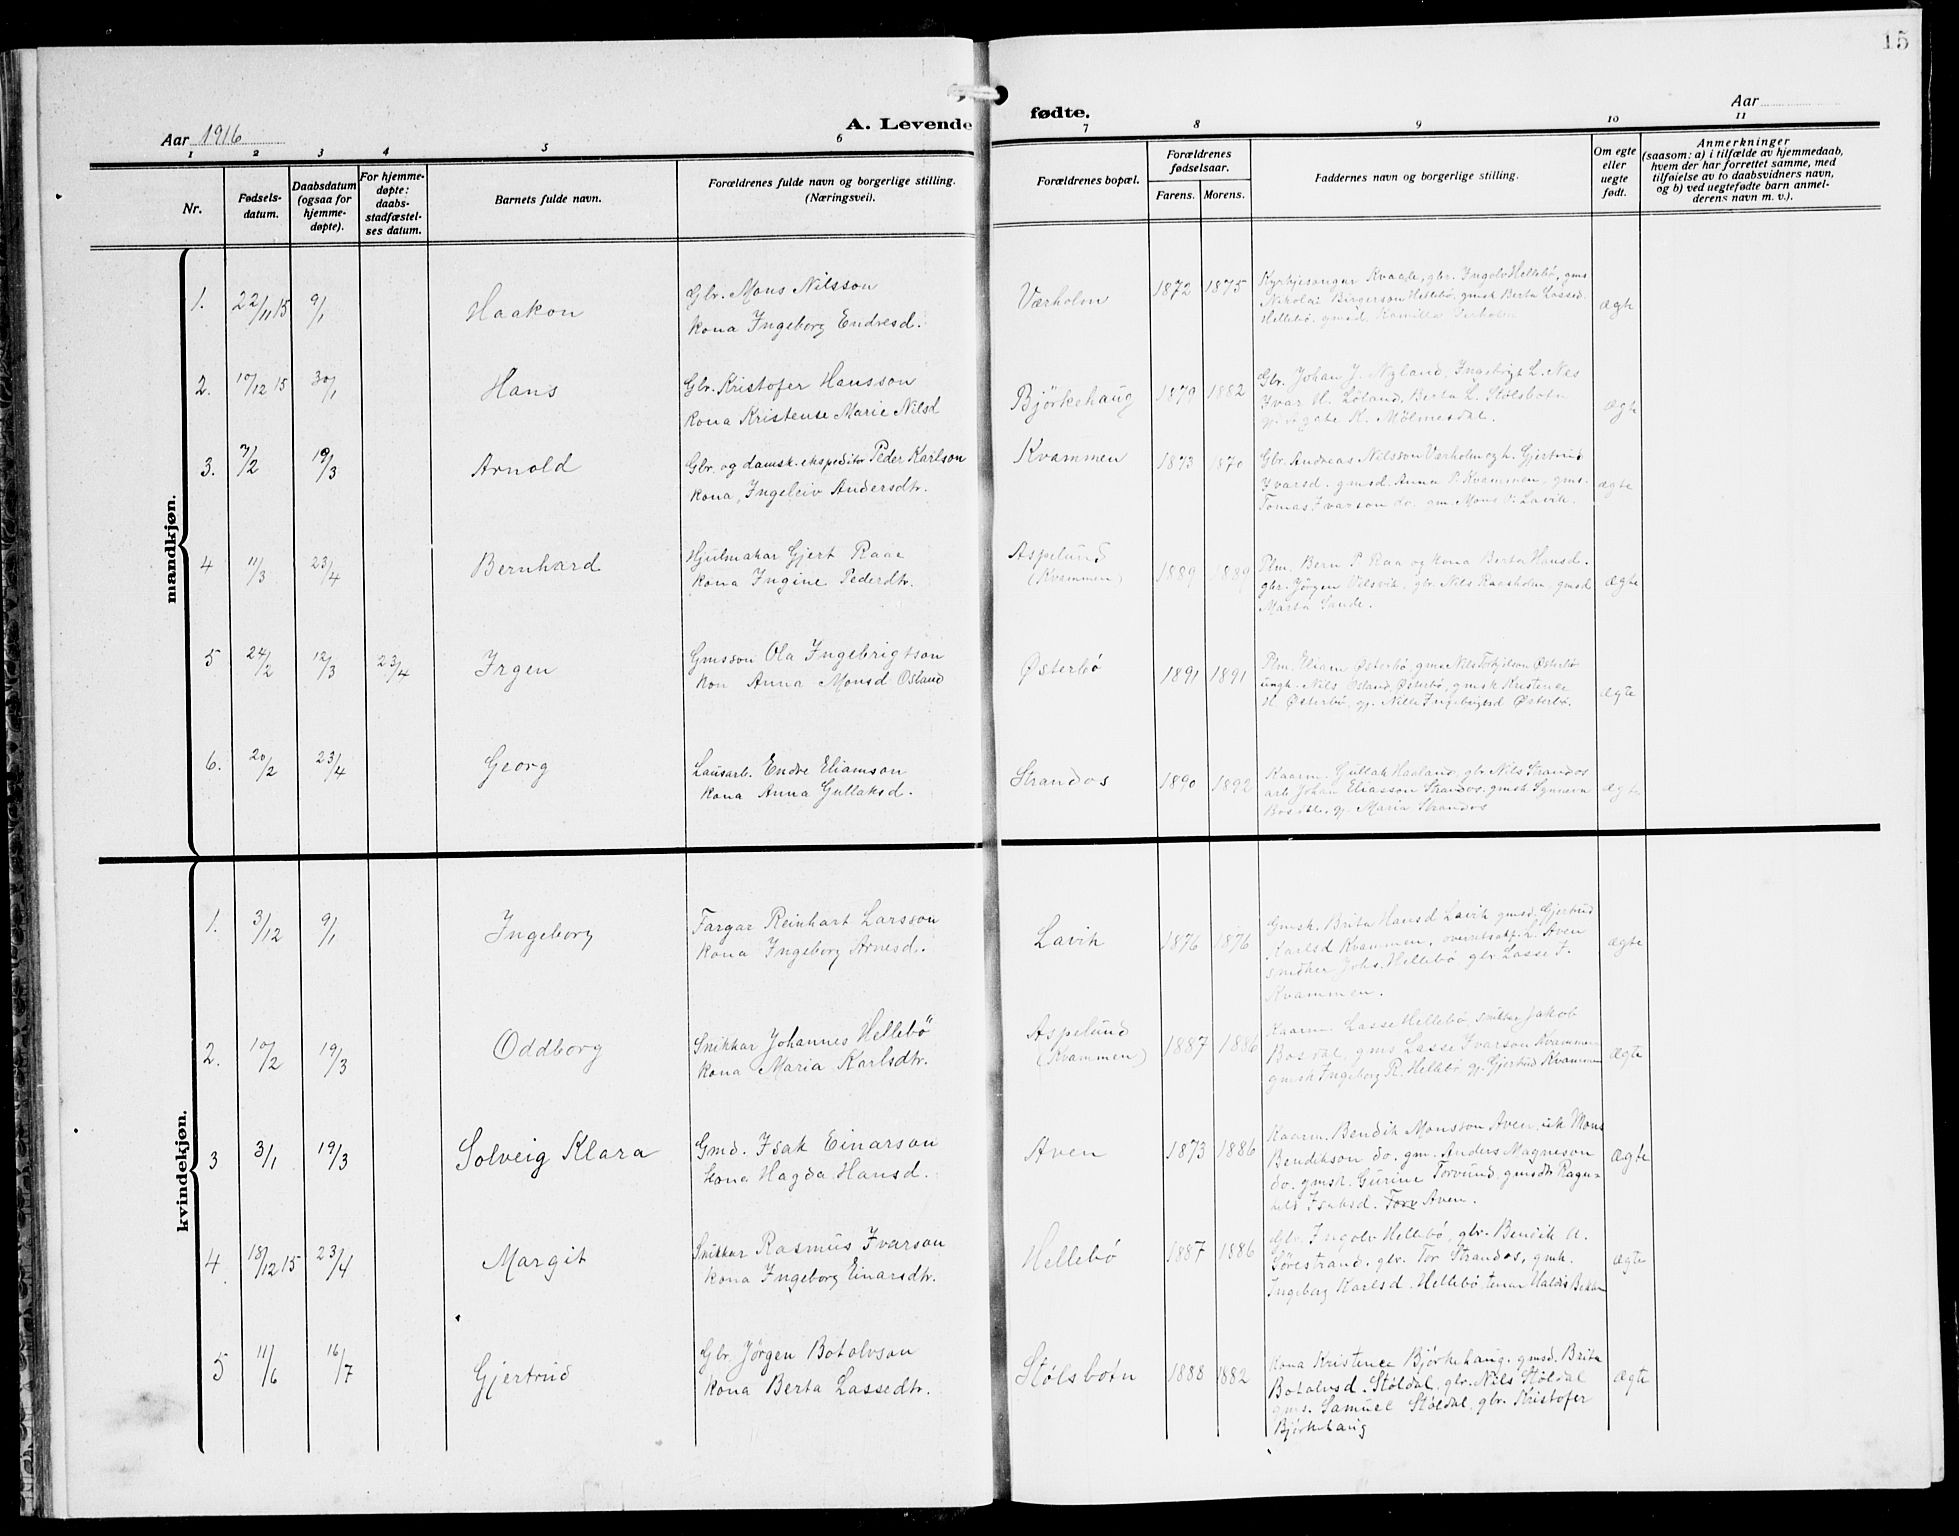 15
Aar 1916
A. Levende fødte.
Aar
1 2 3 4 5 6 7 8 9 10 11
Nr.
Fødsels-
datum.
Daabsdatum
(ogsaa for
hjemme-
døpte).
For hjemme-
døpte:
daabs-
stadfæstel-
ses datum.
Barnets fulde navn.
Forældrenes fulde navn og borgerlige stilling.
(Næringsvei).
Forældrenes bopæl.
Forældrenes
fødselsaar.
Farens. Morens.
Faddernes navn og borgerlige stilling.
Om egte
eller
uegte
født.
Anmerkninger
(saasom: a) i tilfælde av hjemmedaab,
hvem der har forrettet samme, med
tilføielse av to daabsvidners navn,
og b) ved uegtefødte barn anmel-
derens navn m. v.).
mandkjøn.
1. 22/11 15 9/1 Haakon
Gbr. Mons Nilsson
kona Ingeborg Endresd.
Værholm 1872 1875
Kyrkjesongar Kvaale, gbr. Ingolv Hellebø, gms
Nikolai Birgerson Hellebø, gmsk Berta Lassed.
Hellebø, gmsd. Kamilla
ægte
2. 10/12 15 30/1 Hans
Gbr. Kristofer Hansson
kona Kristense Marie Nilsd
Bjørkehaug 1879 1882
Gbr. Johan J. Nyland, Ingebrigt L. Nes
Ivar H. Løland, Berta L. Stølsbotn
gj. Agate K. Mølmesdal.
ægte
3. 7/2 19/3 Arnold
Gbr. og dampsk. ekspeditør Peder Karlson
kona, Ingeleiv Andersdtr.
Kvammen 1873 1870
Gbr. Andreas Nilsson Værholm og h. Gjertrud
Ivarsd. gmsd. Anna P. Kvammen, gms.
Tomas Ivarson do. gm. Mons Lavik.
ægte
4 11/3 23/4 Bernhard
Hjulmakar Gjert Raae
kona Ingine Pederdtr.
Aspelund
(Kvammen)
1889 1889
Plm. Bern P. Raa og kona Berta Hansd.
gbr. Jørgen Vilsvik, gbr. Nils Raasholm, gmsd
Marta Sande.
ægte
5 24/2 12/3 23/4 Irgen
Gmsson Ola Ingebrigtson
kon Anna Monsd Osland
Østerbø 1891 1891
Plm. Eliam Østerbø, gms Nils Torbjelson Østerbø
ungk. Nils Osland, Østerbø, gmsk Kristence
H. Østerbø, gj. Nille Ingebrigtsd Østerbø.
ægte
6. 20/2 23/4 Georg
Lausarb. Endre Eliamson
kona Anna Gullaksd.
Strandos 1890 1892
Kaarm. Gullak Haaland, gbr. Nils Strandos
arb. Johan Eliasson Strandos, gmsk Synneva
Bosdal, gj. Maria Strandos
ægte
kvindekjøn.
1. 3/12 9/1 Ingeborg
Fargar Reinhart Larsson
kona Ingeborg Arnesd.
Lavik 1876 1876
Gmsk. Brita Hansd Lavik gmsd. Gjertrud
Karlsd Kvammen, overretssakf. L. Aven
snidker Johs. Hellebø gbr. Lasse I.
Kvammen.
ægte
2. 10/2 19/3 Oddborg
Snikkar Johannes Hellebø
kona Maria Karlsdtr.
Aspelund
(Kvammen)
1887 1886
Kaarm. Lasse Hellebø, snikkar Jakob
Bosdal, gms Lasse Ivarson Kvammen
gmsk Ingeborg R. Hellebø gj. Gjertrud Kvammen
ægte
3 3/1 19/3 Solveig Klara
Gmd. Isak Einarson
kona Hagda Hansd.
Aven 1873 1886
Kaarm. Bendik Monsson Aven, uk Mons
Bendikson do. gm. Anders Magneson
do. gmsk. Gurine Torvund, gmsdtr Ragn-
Isaksd. Aven.
ægte
4 18/12 15 23/4 Margit
Snikkar Rasmus Ivarson
kona Ingeborg Einarsdtr.
Hellebø 1887 1886
Gbr. Ingolv Hellebø, gbr. Bendik A.
Sørestrand, gbr. Tor Strandos, gmk.
Ingeborg Karlsd. Hellebø, tenar Haldis
ægte
5 11/6 16/7 Gjertrud
Gbr. Jørgen Botolvson
kona Berta Lassedtr.
Stølsbotn 1888 1882
Kona Kristence Bjørkehaug, gmsd. Brita
Botolvsd. Støldal, gbr. Nils Støldal
gms. Samuel Støldal, gbr. Kristofer
Bjørkehaug
ægte